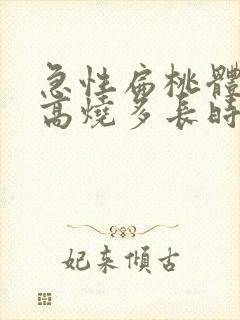 急性扁桃體
高燒多長時
妃来傾古